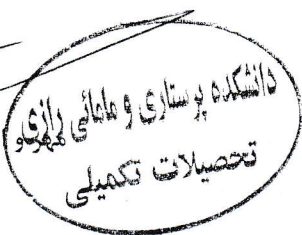 دانشکده پرستاری و مامائی رازی
تحصیلات تکمیلی